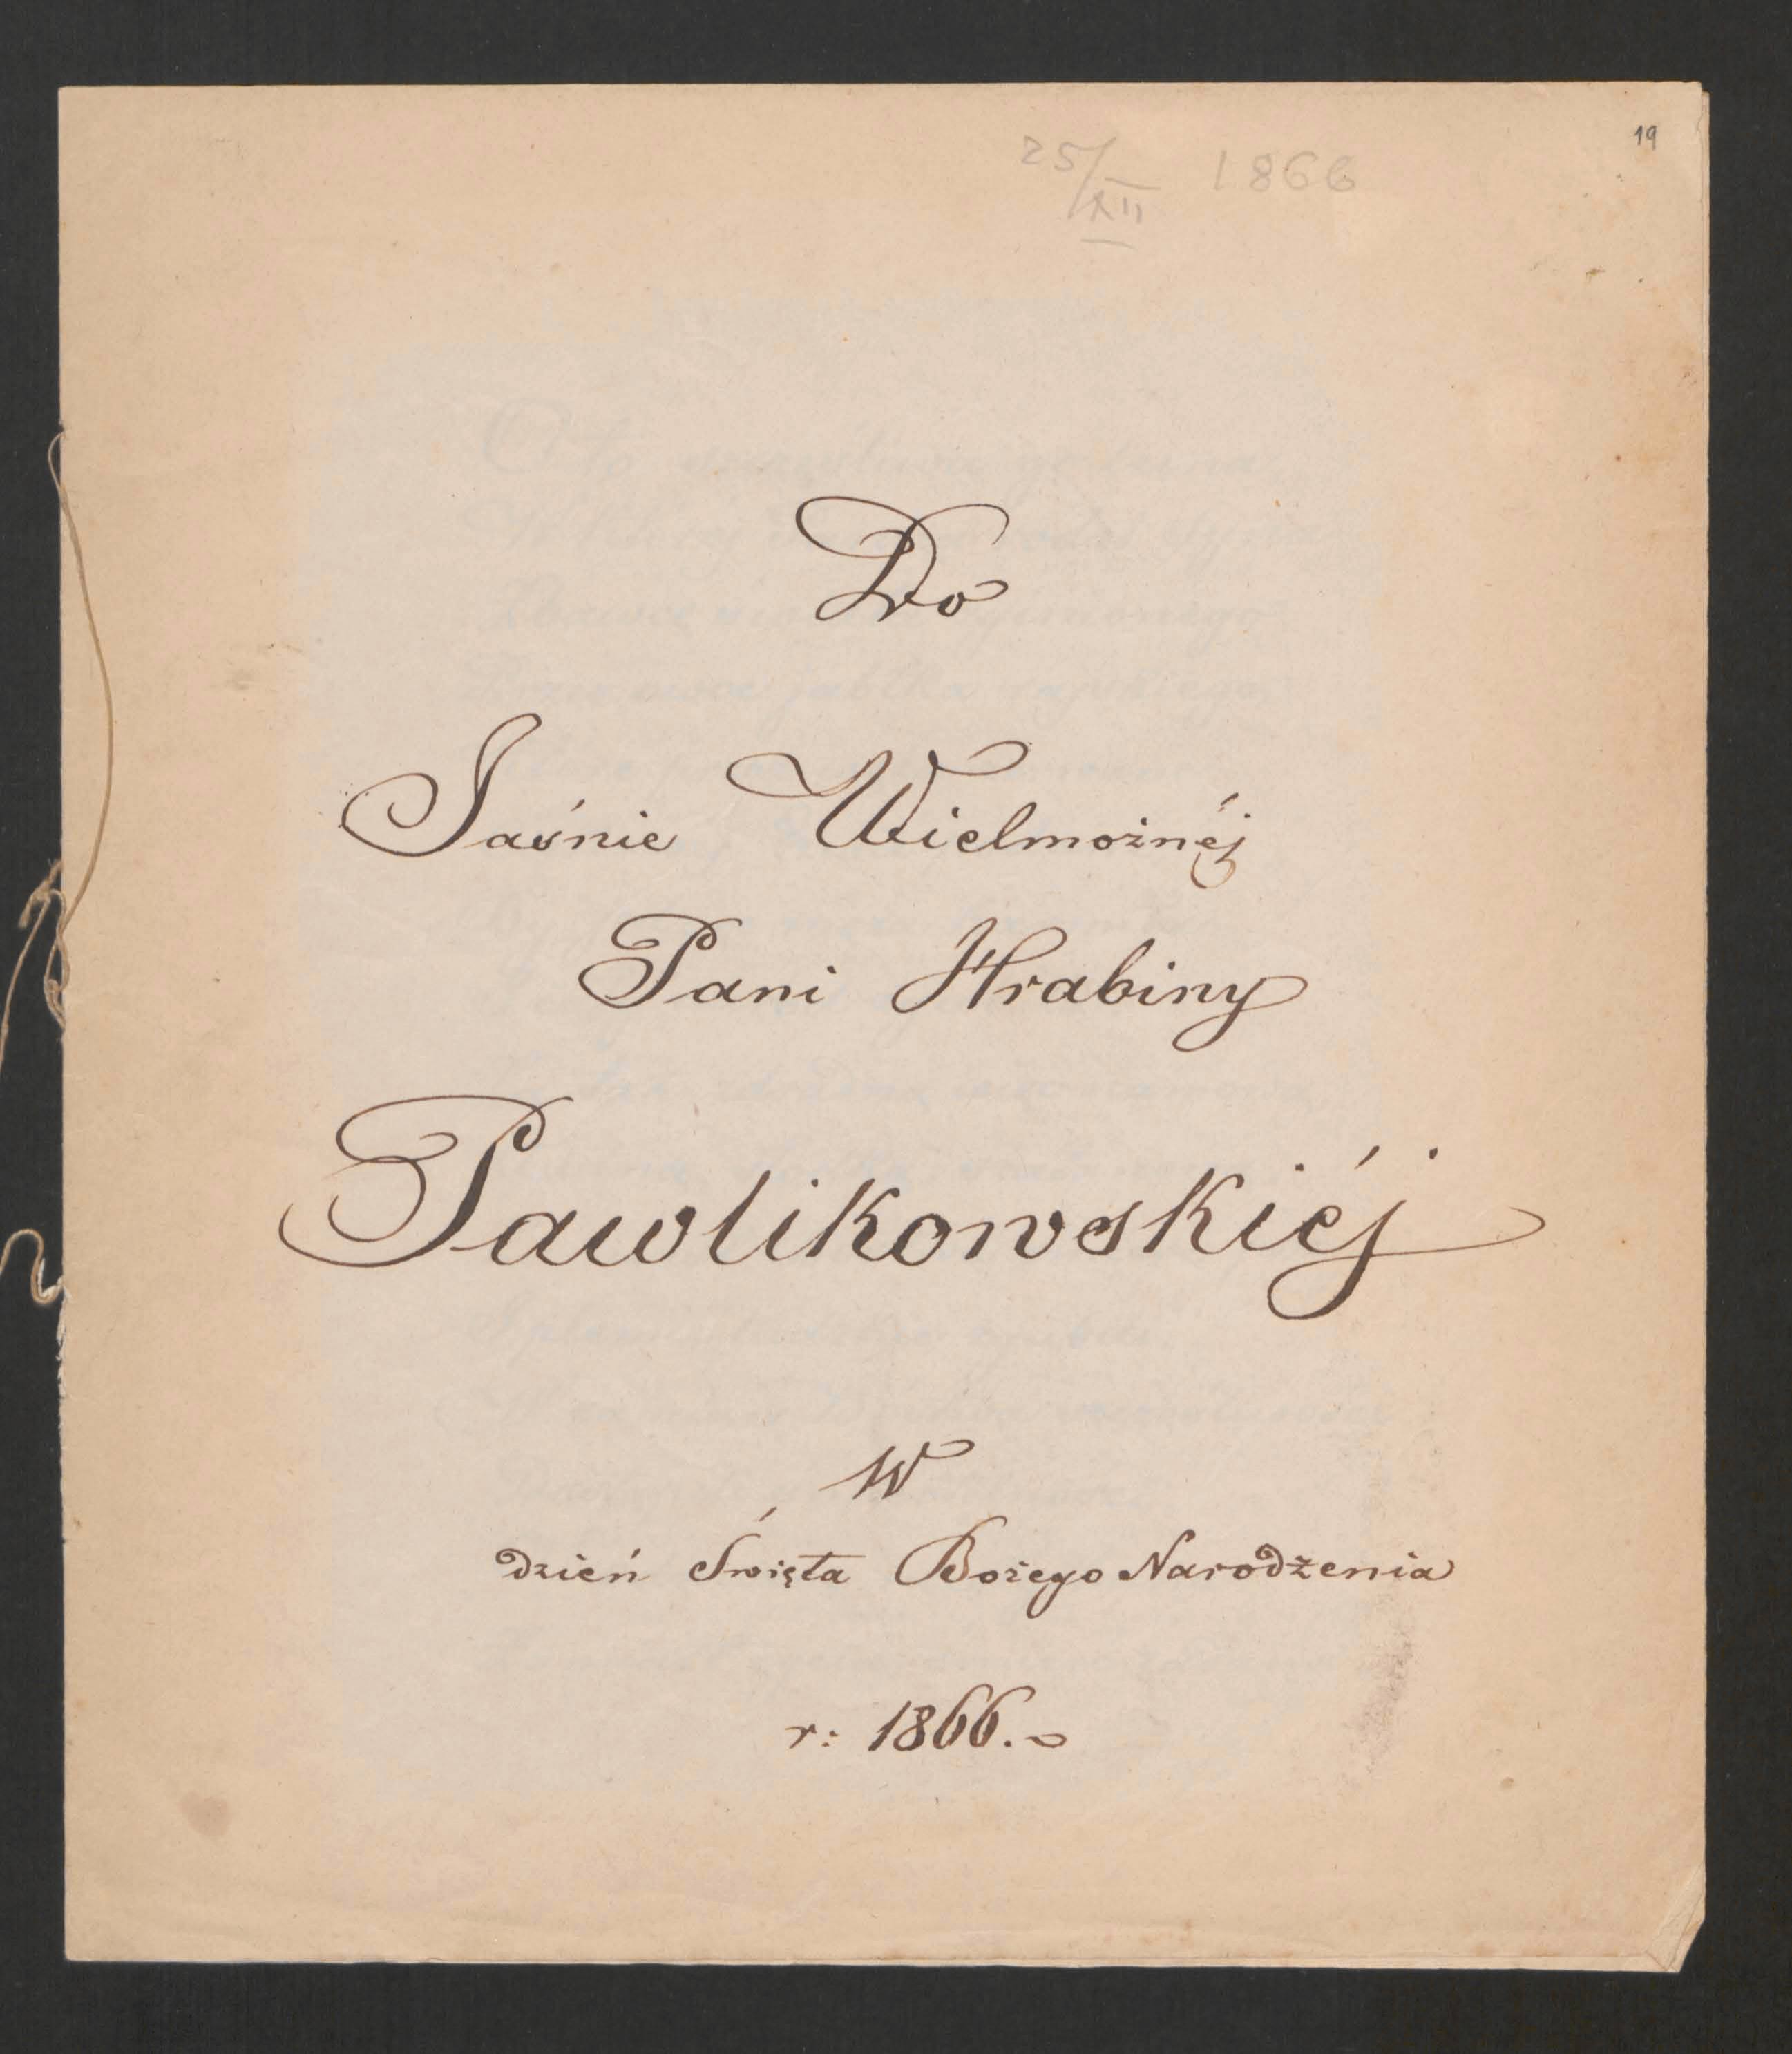 19
25/XII 1866
Do
Jaśnie Wielmożnéj
Pani Hrabiny
Pawlikowskiéj
W
dzień Święta Bożego Narodżenia
r: 1866.